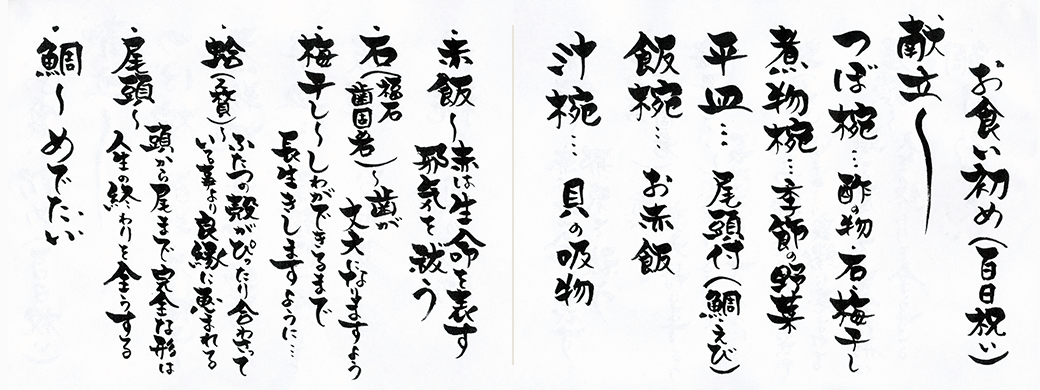 お食い初め(百日祝い)
献立〜
つぼ椀…酢の物・石・梅干し
煮物椀…季節の野菜
平皿…尾頭付(鯛えび)
飯椀…お赤飯
汁椀…貝の吸物
・赤飯〜赤は生命を表す
邪気を祓う
・石(碁石
歯固石)〜歯が
丈夫になりますよう
・梅干し〜しわができるまで
長生きしますように…
・蛤(貝)〜
ふたつの殻がぴったり合わさって
いる事より良縁に恵まれる
・尾頭〜
頭から尾まで完全な形は
人生の終わりを全うする
・鯛〜めでたい